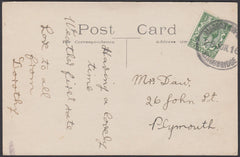 Post Card
Having a lovely
time
Weather first rate.
Love to all
from
Dorothy
Mrs Daw.
26 John St
Plymouth